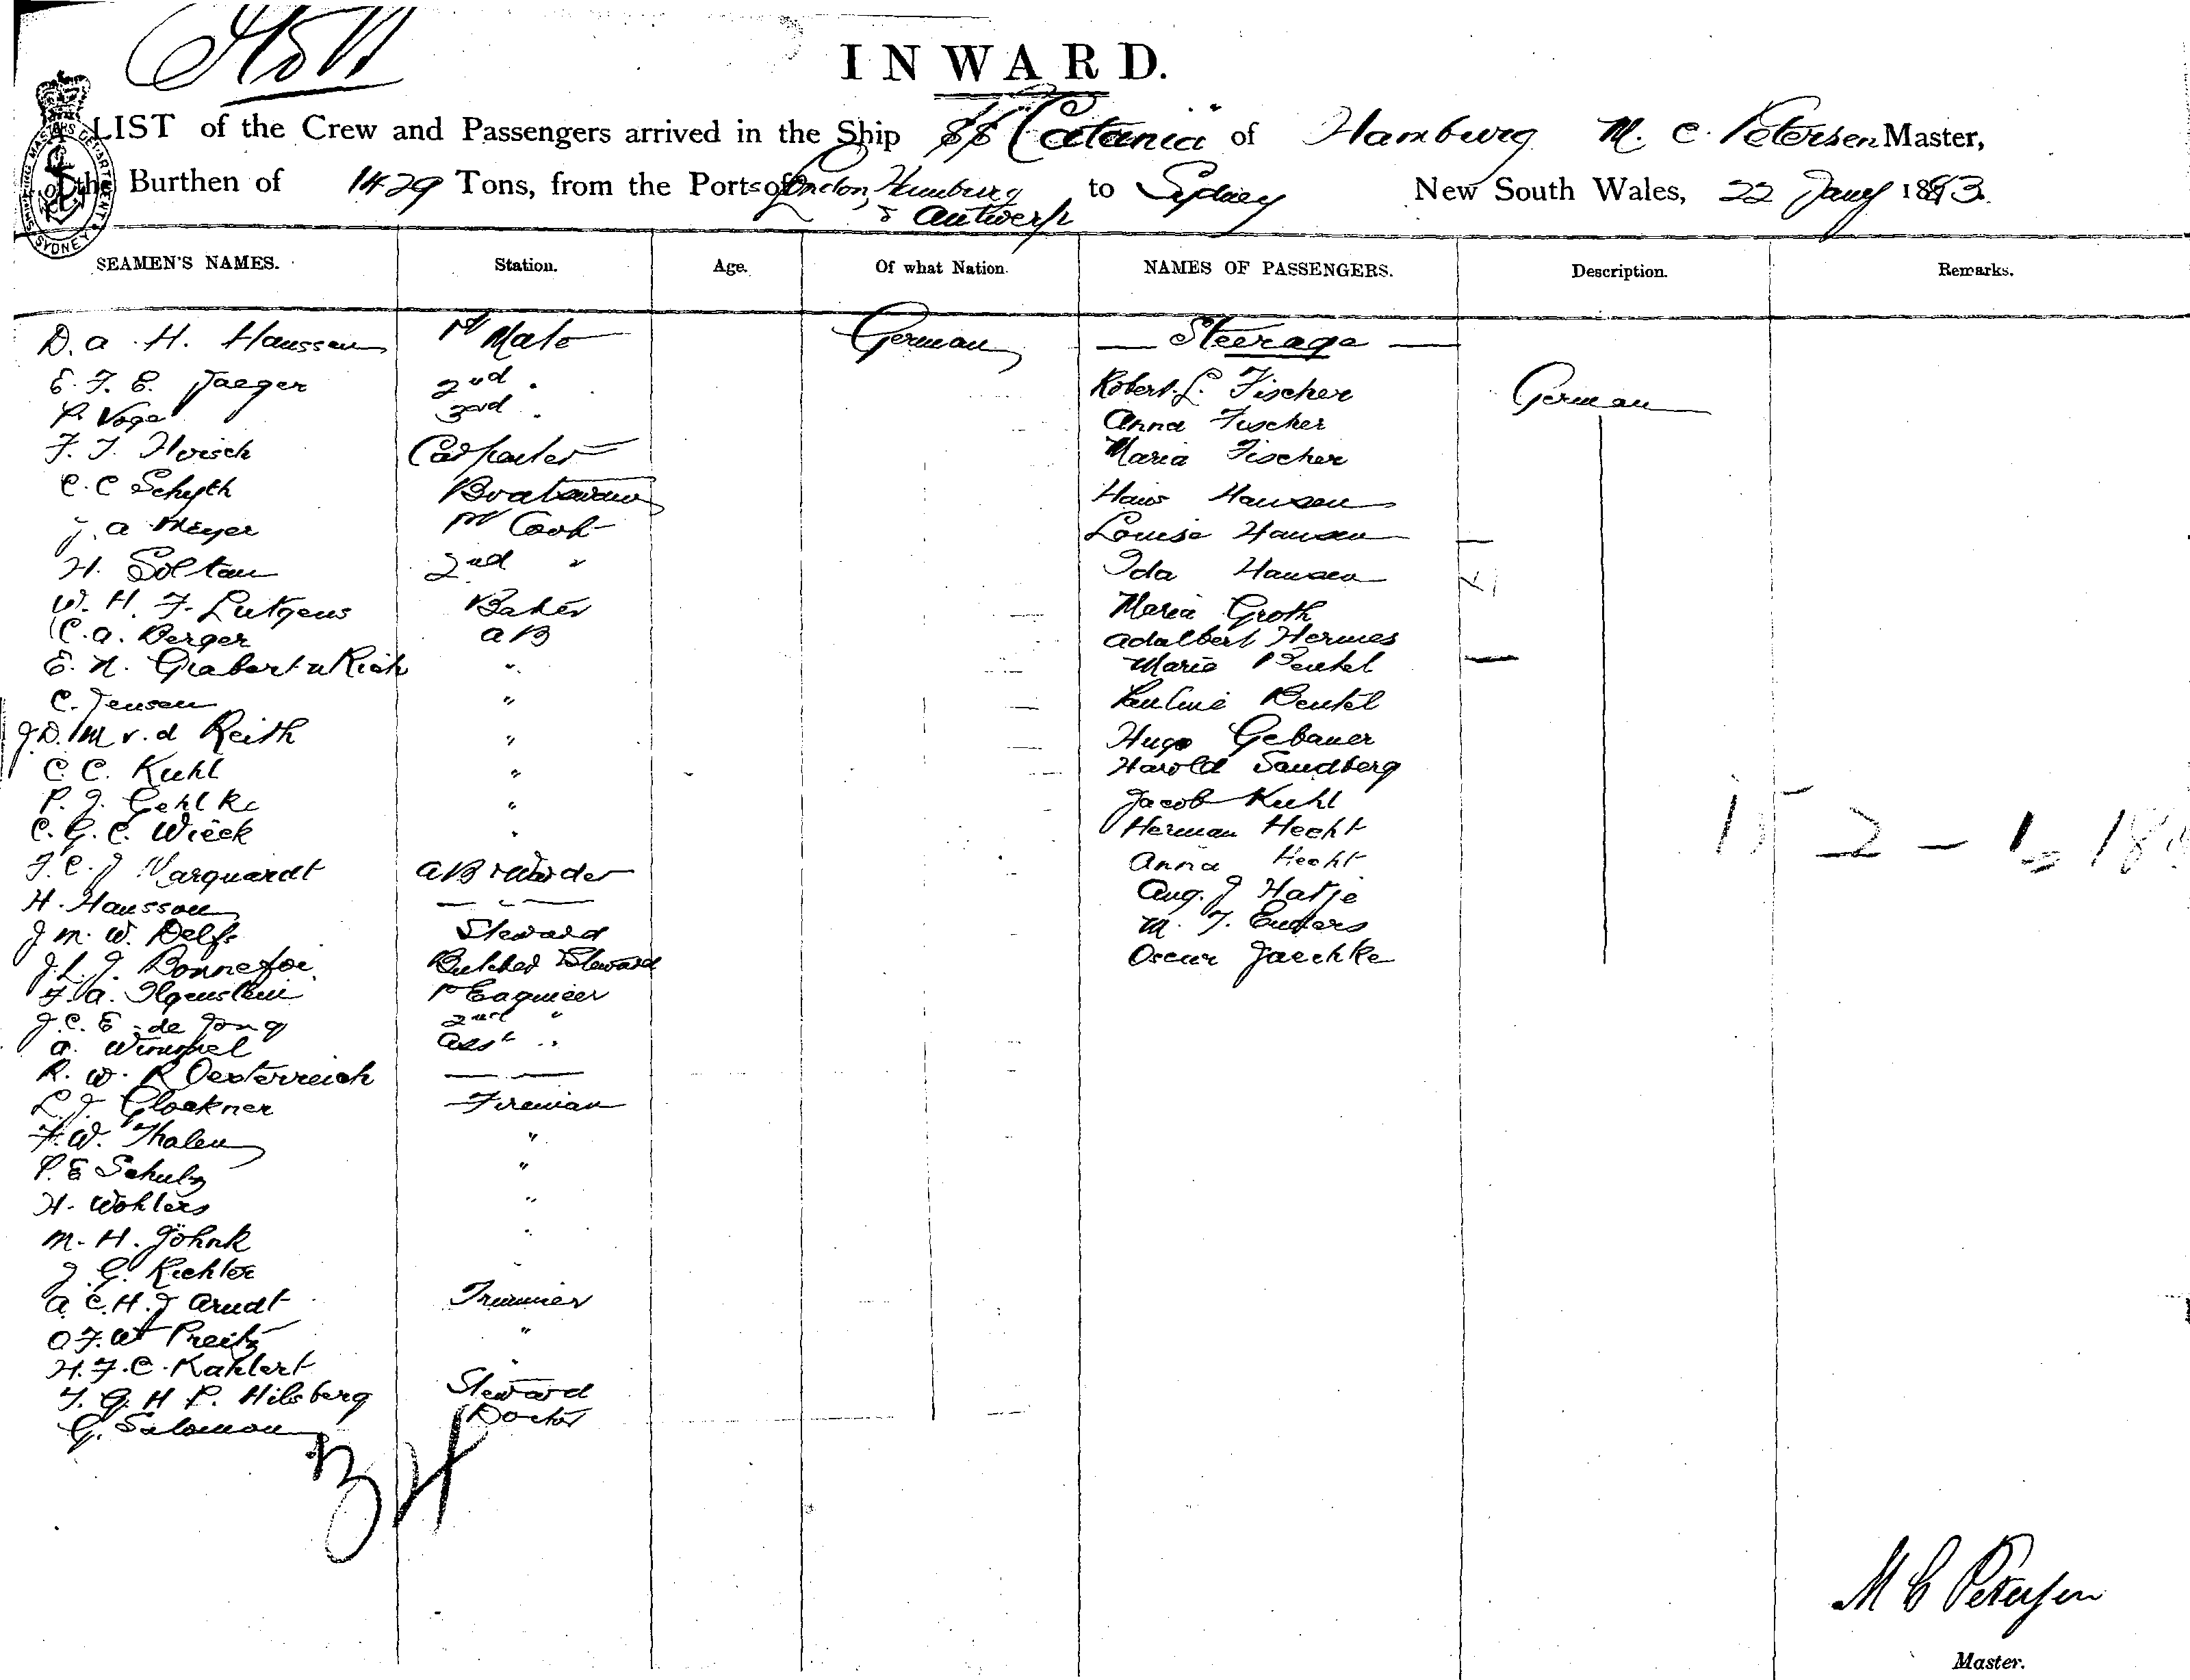 INWARD.
LIST of the Crew and Passengers arrived in the Ship SS "Catania" of Hamburg M. C. Petersen Master,
the Burthen of 1429 Tons, from the Ports of London, Hamburg to Sydney New South Wales, 22 Jany 1883.
& Antwerp
SEAMEN'S NAMES. Station. Age. Of what Nation. NAMES OF PASSENGERS. Description. Remarks.
D. A. H. Haussen 1st Mate German — Steerage —
E. F. E. Jaeger 2nd " Robert L. Fischer German
P. Voge 3rd " Anna Fischer
F. J. Hoisch Carpenter Maria Fischer
C. C Schyth Boatswain Hans Hansen
J. A Meyer 1st Cook Louise Hansen
H. Soltau 2nd " Ida Hansen
W. H. F. Lutgens Baker Maria Groth
C. A. Berger AB Adalbert Hermes
E. N. Grabert " Marie Beutel
C. Jensen " Pauline Beutel
J. D. M v. d Reith " Hugo Gebauer
C. C. Kuhl " Harold Sandberg
P. J. Gehlke " Jacob Kuhl
C. G. C. Wieck " Herman Hecht
F. C. J Marquardt AB Anna Hecht
H. Haussen — " — Aug. J Hatje
J M. W. Delfs Steward M. F. Enders
J. L. J. Bonnefoi Butcher Steward Oscar Jaechke
F. A. Ilgenstein 1st Engineer
J. C. E de Jong 2nd "
A. Wimmel Asst "
R. W. R Oesterreich — —
L. J. Glockner Fireman
F. W. Thalen "
P. E Schulz "
H. Wohlers "
M. H. Göhnk "
J. G. Richter "
A. C. H. J Arndt Trimmer
O F. W Preitz "
H. F. C. Kahlert "
F. G. H P. Hilsberg Steward
G. Salomon Doctor
34
M C Petersen
Master.